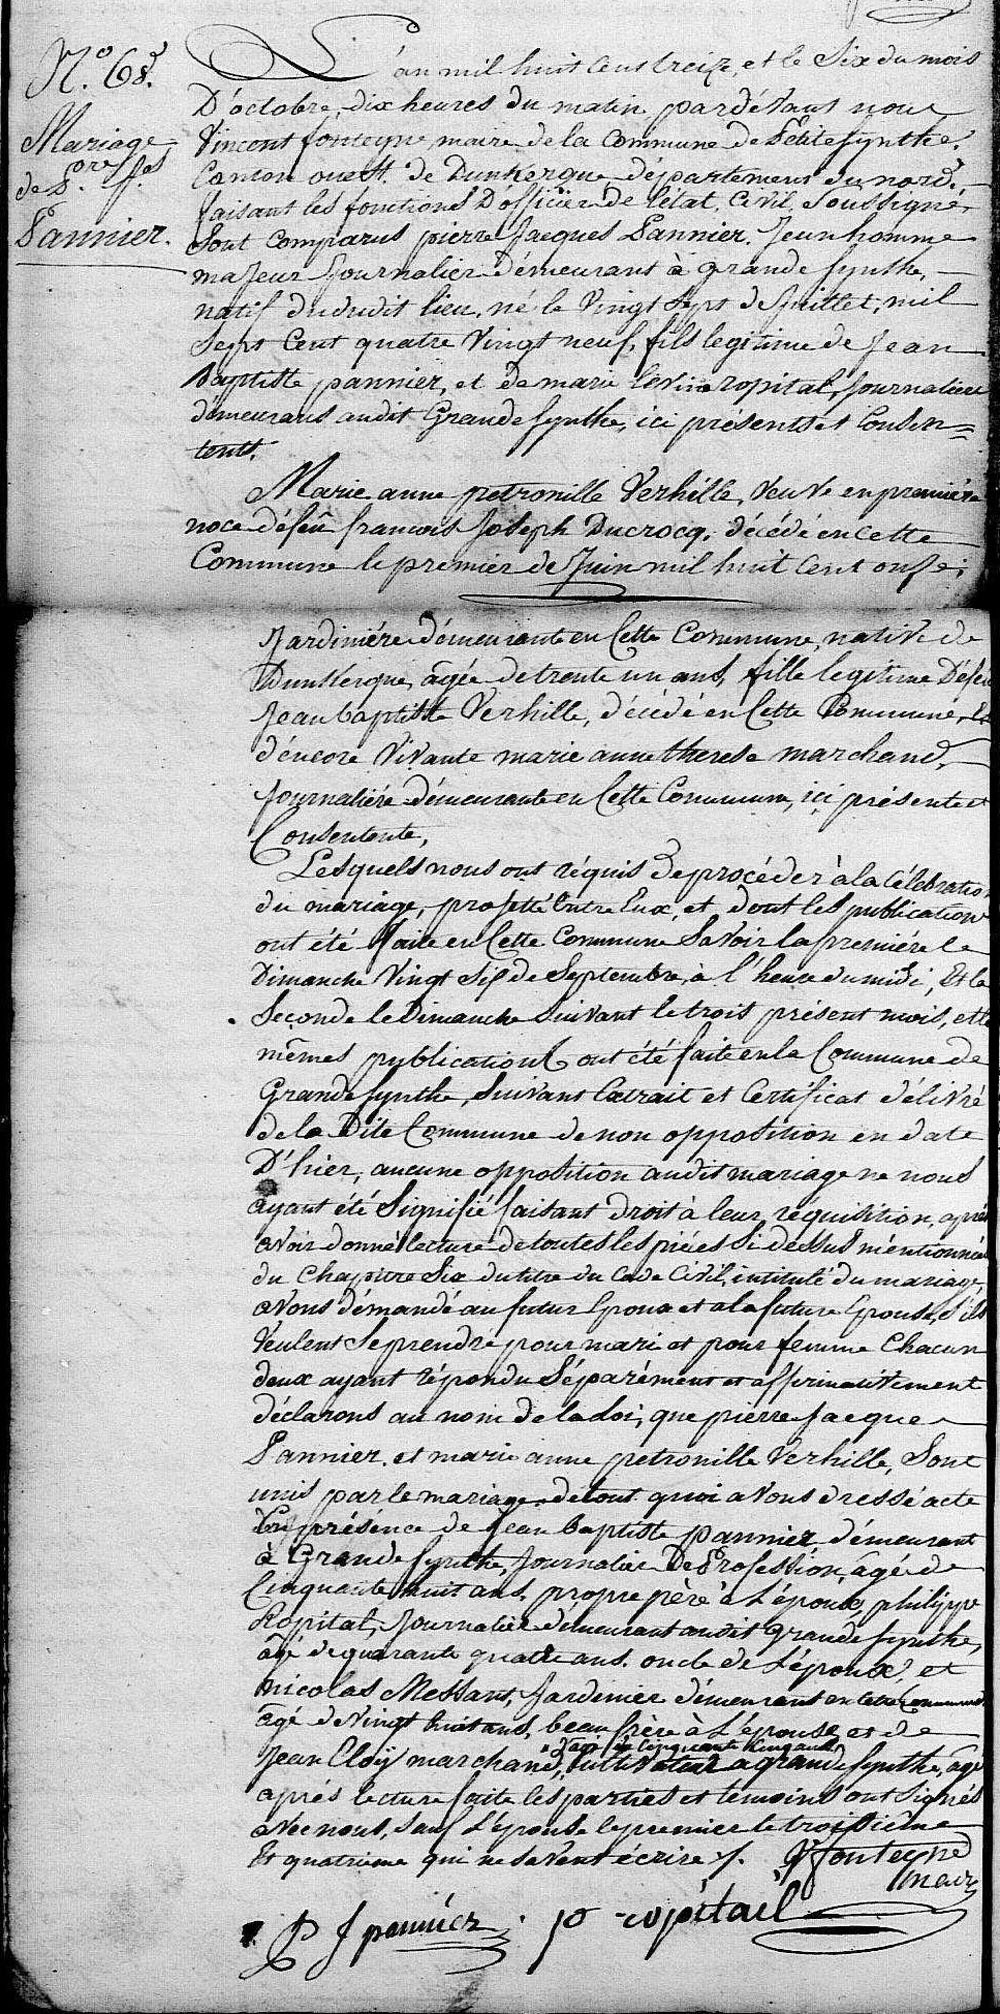 N.° 68.
Mariage
de P.re J.es
Pannier.
L'an mil huit cens treize, et le Six du mois
D'octobre, dix heures du matin pardévant nous
Vincent fonteyne, maire de la Commune de Petite Synthe,
Canton ouest. de Dunkerque département du nord,
faisant les fonctions D'officier de l'état Civil Soussigné,
Sont Comparus pierre Jacques Pannier. Jeun homme
majeur Journalier démeurant à grande Synthe,
natif dududit lieu, né le Vingt Sept de Juillet, mil
Sept Cent quatre Vingt neuf, fils legitime de Jean
Baptiste pannier, et de marie ropital, Journaliers
démeurans audit Grande Synthe, ici présents et Consen=
tents.
Marie anne petronille Verhille, Veuve en premiére
noce défeû francois Joseph Ducrocq. décédé en cette
Commune le premier de Juin mil huit Cent onse;
Jardiniére démeurante en Cette Commune, native de
Dunkerque, agée de trente un ans, fille legitime Défeu
Jean baptiste Verhille, décédé en Cette Commune, Et
d'éncore Vivante marie anne therese marchand,
Journaliére démeurante en Cette Commune, ici présente et
Consentente,
Lesquels nous ont réquis De procéder à la Célébration
du mariage, projetté Entre Eux, et dont les publications
ont été faite en Cette Commune Savoir la premiére le
Dimanche Vingt Six de Septembre, à l'heure du midi, Et la
Seconde le Dimanche Suivant le trois présent mois, et les
mêmes publications ont été faite en la Commune de
Grande Synthe, Suivant Extrait et Certificat délivré
de la Dite Commune de non opposition en date
D'hier, aucune opposition audit mariage ne nous
ayant été Signifié faisant droit à leur requisition, aprés
avoir donné lecture de toutes les piéces Si dessus méntionnées
du Chapitre Six du titre du Code Civil, intitulé du mariage,
avons démandé au futur Epoux et a la future Epouse, s'ils
Veulent Se prendre pour mari et pour femme Chacun
deux ayant répondu Séparément et affirmativement
déclarons au nom de la loi, que pierre Jacques
Pannier. et marie anne petronille Verhille, Sont
unis par le mariage. de tout quoi avons dressé acte
En présence de Jean baptiste pannier, démeurant
à Grande Synthe, Journalier De Profession, âgé de
Cinquante huit ans, propre pére à L'époux, philippe
Ropital, Journalier démeurant audit grande Synthe,
âgé de quarante quatre ans. oncle de L'époux, et
nicolas Messant, Jardinier démeurant en cette Commune
agé de Vingt huit ans, beau frère à L'épouse, et de
Jean Eloÿ marchand, Cultivateur a grande Synthe, agé
de Cinquante Cinq ans
aprés lecture faite les parties et temoins ont Signés
avec nous, Sauf L'épouse le premier le troisième
Et quatrieme qui ne Savent écrire ./.
V fonteyne
maire
P J pannier
p ropitael